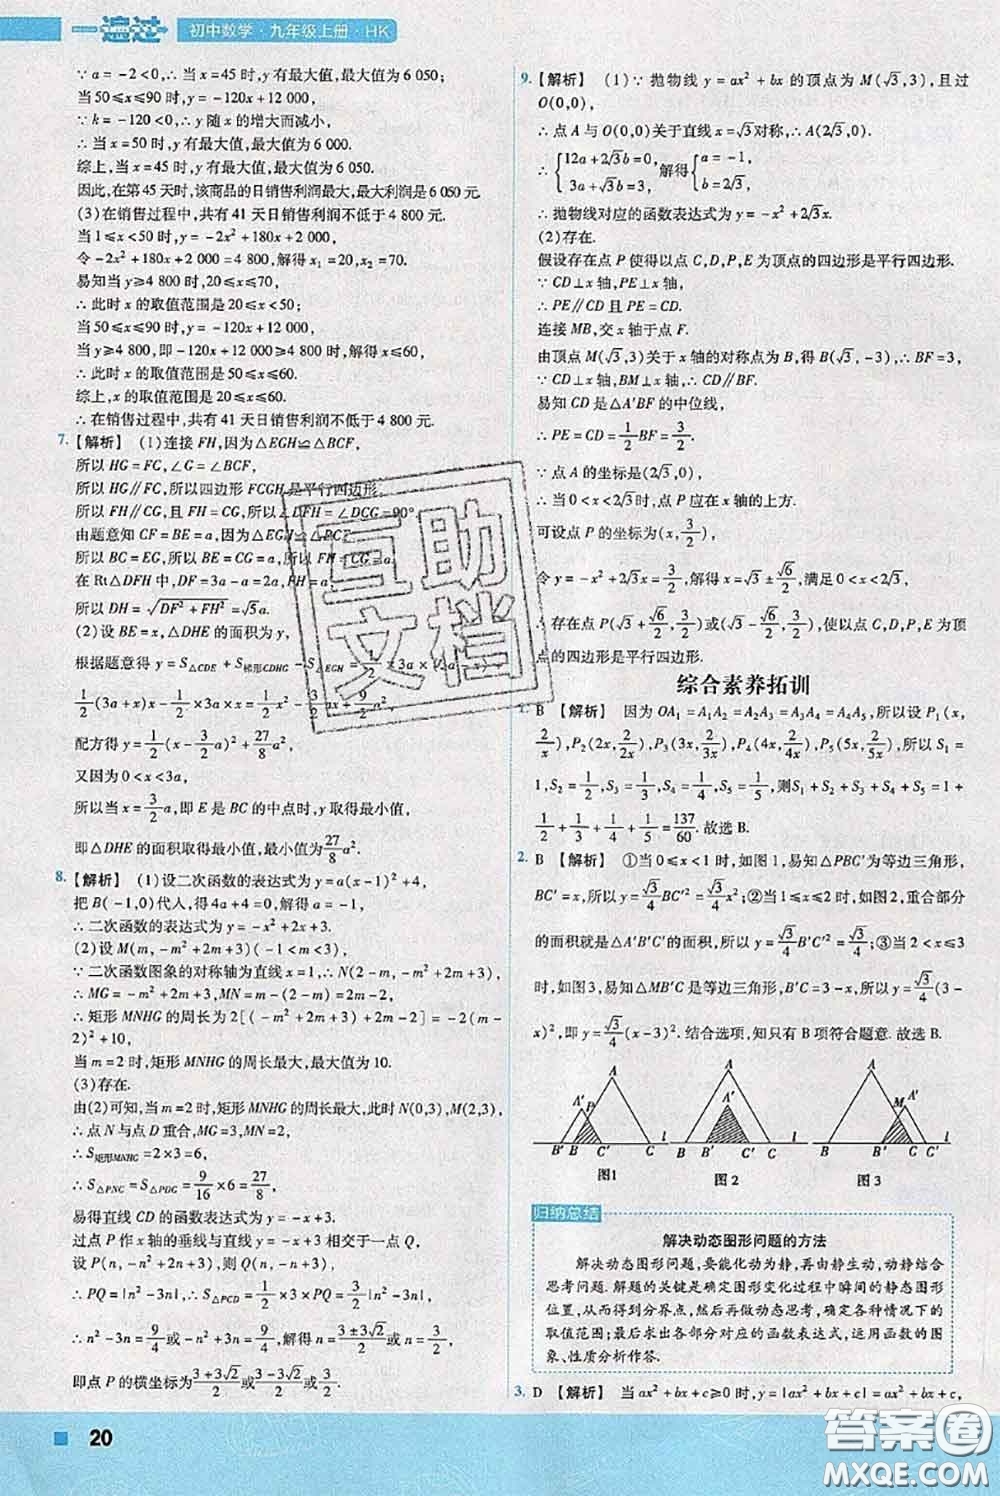 一遍过 初中数学·九年级上册·HK
∵a=-2<0,∴当x=45时,y有最大值,最大值为6 050;
当50≤x≤90时,y=-120x+12 000,
∵k=-120<0,∴y随x的增大而减小,
∴当x=50时,y有最大值,最大值为6 000.
综上,当x=45时,y有最大值,最大值为6 050.
因此,在第45天时,该商品的日销售利润最大,最大利润是6 050元.
(3)在销售过程中,共有41天日销售利润不低于4 800元.
当1≤x<50时,y=-2x²+180x+2 000,
令-2x²+180x+2 000=4 800,解得x₁=20,x₂=70.
易知当y≥4 800时,20≤x≤70,
∴此时x的取值范围是20≤x<50;
当50≤x≤90时,y=-120x+12 000,
当y≥4 800,即-120x+12 000≥4 800时,解得x≤60,
∴此时x的取值范围是50≤x≤60.
综上,x的取值范围是20≤x≤60.
∴在销售过程中,共有41天日销售利润不低于4 800元.
7. 【解析】 (1)连接FH,因为△EGH≌△BCF,
所以HG=FC,∠G=∠BCF,
所以HG∥FC,所以四边形FCGH是平行四边形,
所以FH∥CG,且FH=CG,所以∠DFH=∠DCG=90°.
由题意知CF=BE=a,因为△EGH≌△BCF,
所以BC=EG,所以BE=CG,所以FH=CG=a.
在Rt△DFH中,DF=3a-a=2a,FH=a,
所以DH=√(DF²+FH²)=√5a.
(2)设BE=x,△DHE的面积为y,
根据题意得y=S△CDE+S梯形CDHG-S△EGH=1/2×3a×(3a-x)+
1/2(3a+x)x-1/2×3a×x=1/2x²-3/2ax+9/2a²,
配方得y=1/2(x-3/2a)²+27/8a²,
又因为0<x<3a,
所以当x=3/2a,即E是BC的中点时,y取得最小值,
即△DHE的面积取得最小值,最小值为27/8a².
8. 【解析】 (1)设二次函数的表达式为y=a(x-1)²+4,
把B(-1,0)代人,得4a+4=0,解得a=-1,
∴二次函数的表达式为y=-x²+2x+3.
(2)设M(m,-m²+2m+3)(-1<m<3),
∵二次函数图象的对称轴为直线x=1,∴N(2-m,-m²+2m+3),
∴MG=-m²+2m+3,MN=m-(2-m)=2m-2,
∴矩形MNHG的周长为2[(-m²+2m+3)+2m-2]=-2(m-
2)²+10,
当m=2时,矩形MNHG的周长最大,最大值为10.
(3)存在.
由(2)可知,当m=2时,矩形MNHG的周长最大,此时N(0,3),M(2,3),
∴点N与点D重合,MG=3,MN=2,
∴S矩形MNHG=2×3=6,
∴S△PNC=S△PDG=9/16×6=27/8,
易得直线CD的函数表达式为y=-x+3.
过点P作x轴的垂线与直线y=-x+3相交于一点Q,
设P(n,-n²+2n+3),则Q(n,-n+3),
∴PQ=|n²-3n|,∴S△PCD=1/2×3×PQ=3/2×|n²-3n|=27/8,
∴n²-3n=9/4或-n²+3n=9/4,解得n=(3±3√2)/2或n=3/2,
即点P的横坐标为(3+3√2)/2或(3-3√2)/2或3/2.
9. 【解析】 (1)∵抛物线y=ax²+bx的顶点为M(√3,3),且过
O(0,0),
∴点A与O(0,0)关于直线x=√3对称,∴A(2√3,0).
∴{12a+2√3b=0, 3a+√3b=3, 解得{a=-1, b=2√3,
∴抛物线对应的函数表达式为y=-x²+2√3x.
(2)存在.
假设存在点P使得以点C,D,P,E为顶点的四边形是平行四边形.
∵CD⊥x轴,PE⊥x轴,
∴PE∥CD且PE=CD.
连接MB,交x轴于点F.
由顶点M(√3,3)关于x轴的对称点为B,得B(√3,-3),∴BF=3.
∵CD⊥x轴,BM⊥x轴,∴CD∥BF.
易知CD是△A'BF的中位线,
∴PE=CD=1/2BF=3/2.
∵点A的坐标是(2√3,0),
∴当0<x<2√3时,点P应在x轴的上方.
可设点P的坐标为(x,3/2),
令y=-x²+2√3x=3/2,解得x=√3±√6/2,满足0<x<2√3,
∴存在点P(√3+√6/2,3/2)或(√3-√6/2,3/2),使以点C,D,P,E为顶
点的四边形是平行四边形.
综合素养拓训
1. B 【解析】 因为OA₁=A₁A₂=A₂A₃=A₃A₄=A₄A₅,所以设P₁(x,
2/x),P₂(2x,2/2x),P₃(3x,2/3x),P₄(4x,2/4x),P₅(5x,2/5x),所以S₁=
1,S₂=1/2,S₃=1/3,S₄=1/4,S₅=1/5,则S₁+S₂+S₃+S₄+S₅=1+
1/2+1/3+1/4+1/5=137/60.故选B.
2. B 【解析】 ①当0≤x<1时,如图1,易知△PBC'为等边三角形,
BC'=x,所以y=√3/4BC'²=√3/4x²;②当1≤x≤2时,如图2,重合部分
的面积就是△A'B'C'的面积,所以y=√3/4B'C'²=√3/4;③当2<x≤3
时,如图3,易知△MB'C是等边三角形,B'C=3-x,所以y=√3/4(3-
x)²,即y=√3/4(x-3)².结合选项,知只有B项符合题意.故选B.
A A' P B' B C' C l 图1
A A' B B' C' C l 图2
A M A' B B' C C' l 图3
归纳总结
解决动态图形问题的方法
解决动态图形问题,要能化动为静,再由静生动,动静结合
思考问题.解题的关键是确定图形变化过程中瞬间的静态图形
位置,从而得到分界点,然后再做动态思考,确定各种情况下的
取值范围;最后求出各部分对应的函数表达式,运用函数的图
象、性质分析作答.
3. D 【解析】 当ax²+bx+c≥0时,y=|ax²+bx+c|=ax²+bx+c,
20
互助
文档
答案圈
MXQE.COM